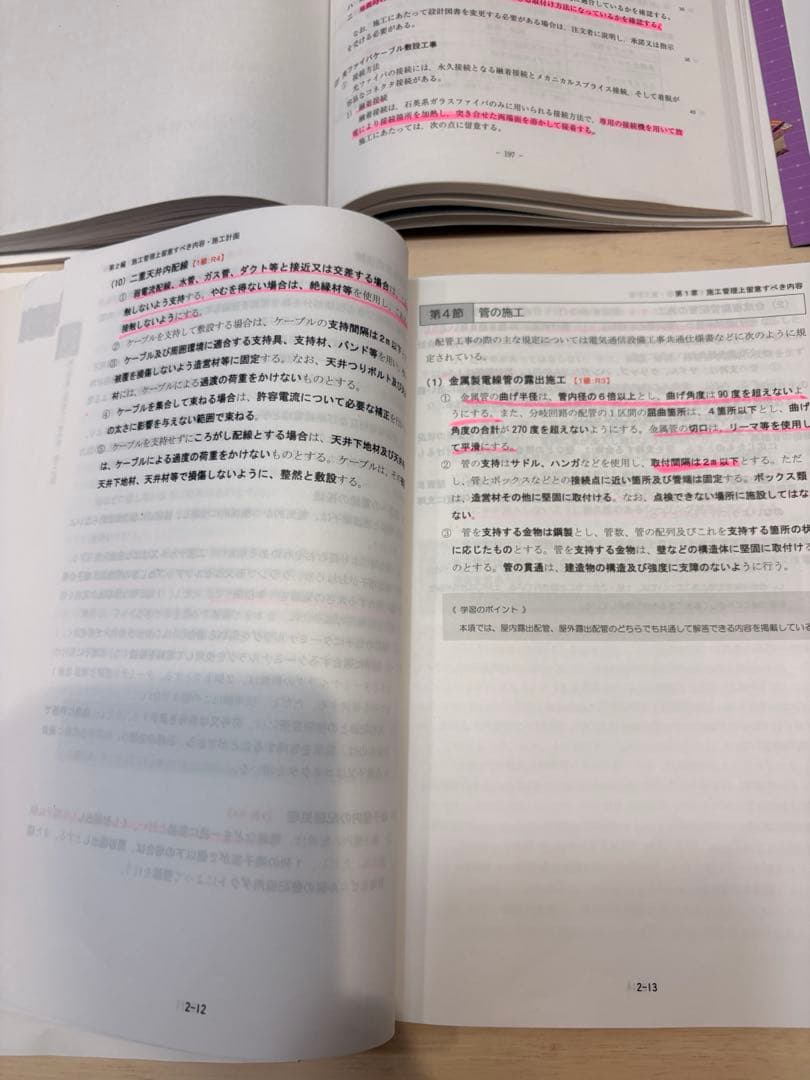 なお、施工にあたって設計図書を変更する必要がある場合は、注文者に説明し、承諾又は指示
を受ける必要がある。
光ファイバケーブル敷設工事
① 接続方法
光ファイバの接続には、永久接続となる融着接続とメカニカルスプライス接続、そして着脱が
容易なコネクタ接続がある。
1) 融着接続
融着接続は、石英系ガラスファイバのみに用いられる接続方法で、専用の接続機を用いて放
電により接続箇所を加熱し、突き合せた両端面を溶かして接着する。
施工にあたっては、次の点に留意する。
- 197 -
第2編 施工管理上留意すべき内容・施工計画
(10) 二重天井内配線【1級:R4】
① 弱電流配線、水管、ガス管、ダクト等と接近又は交差する場合は、
触しないよう支持する。やむを得ない場合は、絶縁材等を使用し、
接触しないようにする。
② ケーブルを支持して敷設する場合は、ケーブルの支持間隔は2m以下
③ ケーブル及び周囲環境に適合する支持具、支持材、バンド等を用い、
被覆を損傷しないよう造営材等に固定する。なお、天井つりボルト及び天
材には、ケーブルによる過度の荷重をかけないものとする。
④ ケーブルを集合して束ねる場合は、許容電流について必要な補正を
の太さに影響を与えない範囲で束ねる。
⑤ ケーブルを支持せずにころがし配線とする場合は、天井下地材及び天井
は、ケーブルによる過度の荷重をかけないものとする。ケーブルは、その
天井下地材、天井材等で損傷しないように、整然と敷設する。
2-12
第1章 施工管理上留意すべき内容
第4節 管の施工
配管工事の際の主な規定については電気通信設備工事共通仕様書などに次のように規
定されている。
(1) 金属製電線管の露出施工【1級:R3】
① 金属管の曲げ半径は、管内径の6倍以上とし、曲げ角度は90度を超えないよ
うにする。また、分岐回路の配管の1区間の屈曲箇所は、4箇所以下とし、曲げ
角度の合計が270度を超えないようにする。金属管の切口は、リーマ等を使用し
て平滑にする。
② 管の支持はサドル、ハンガなどを使用し、取付間隔は2m以下とする。ただ
し、管とボックスなどとの接続点に近い箇所及び管端は固定する。ボックス類
は、造営材その他に堅固に取付ける。なお、点検できない場所に施設してはな
ない。
③ 管を支持する金物は鋼製とし、管数、管の配列及びこれを支持する箇所の状
に応じたものとする。管を支持する金物は、壁などの構造体に堅固に取付ける
のとする。管の貫通は、建造物の構造及び強度に支障のないように行う。
《 学習のポイント 》
本項では、屋内露出配管、屋外露出配管のどちらでも共通して解答できる内容を掲載している
2-13